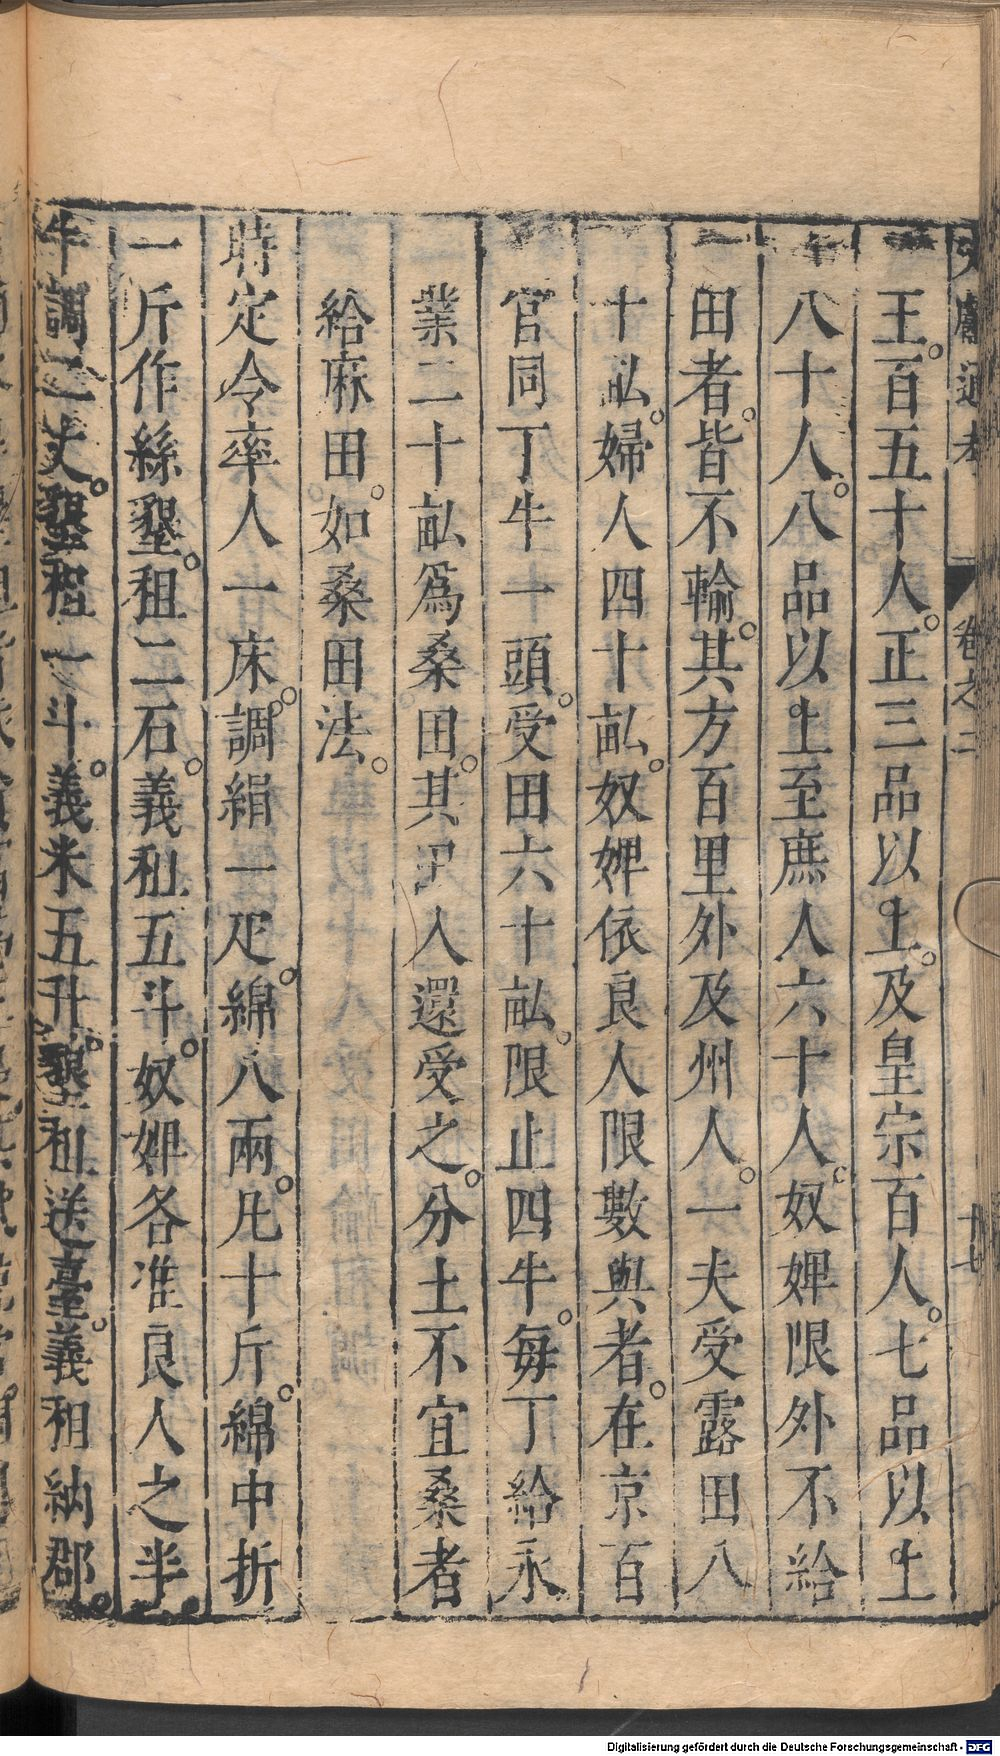 文獻通考 卷之二 十七
王百五十人正三品以上及皇宗百人七品以上
八十人八品以上至庶人六十人奴婢限外不給
田者皆不輸其方百里外及州人一夫受露田八
十畝婦人四十畝奴婢依良人限數與者在京百
官同丁牛一頭受田六十畝限止四牛每丁給永
業二十畝爲桑田其田入還受之分土不宜桑者
給麻田如桑田法
時定令率人一床調絹一疋綿八兩凡十斤綿中折
一斤作絲墾租二石義租五斗奴婢各准良人之半
牛調二丈墾租一斗義米五升墾租送臺義租納郡
Digitalisierung gefördert durch die Deutsche Forschungsgemeinschaft - DFG